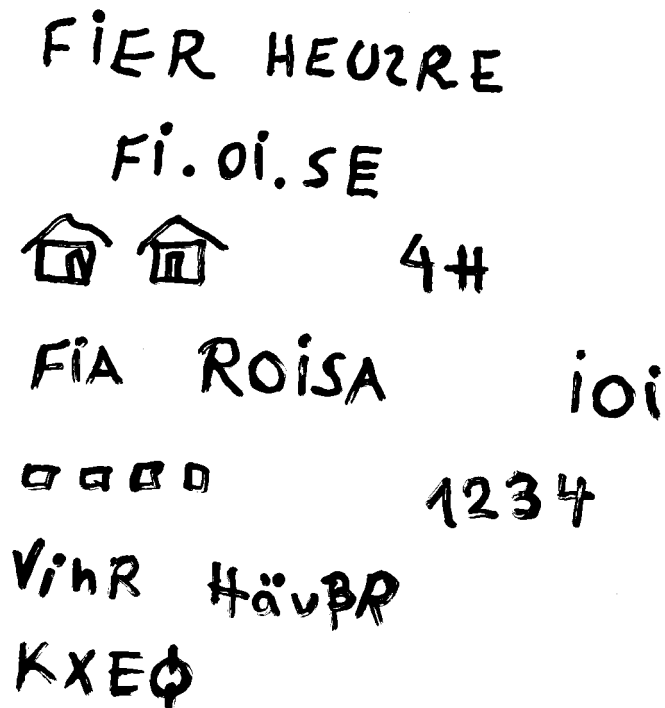 FiER HEUZRE
Fi.oi.SE
4H
FiA ROiSA ioi
1234
VihR HävβR
KXEφ